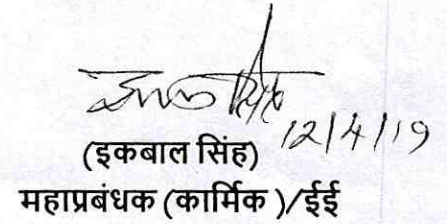 12/4/19
(इकबाल सिंह)
महाप्रबंधक (कार्मिक )/ईई